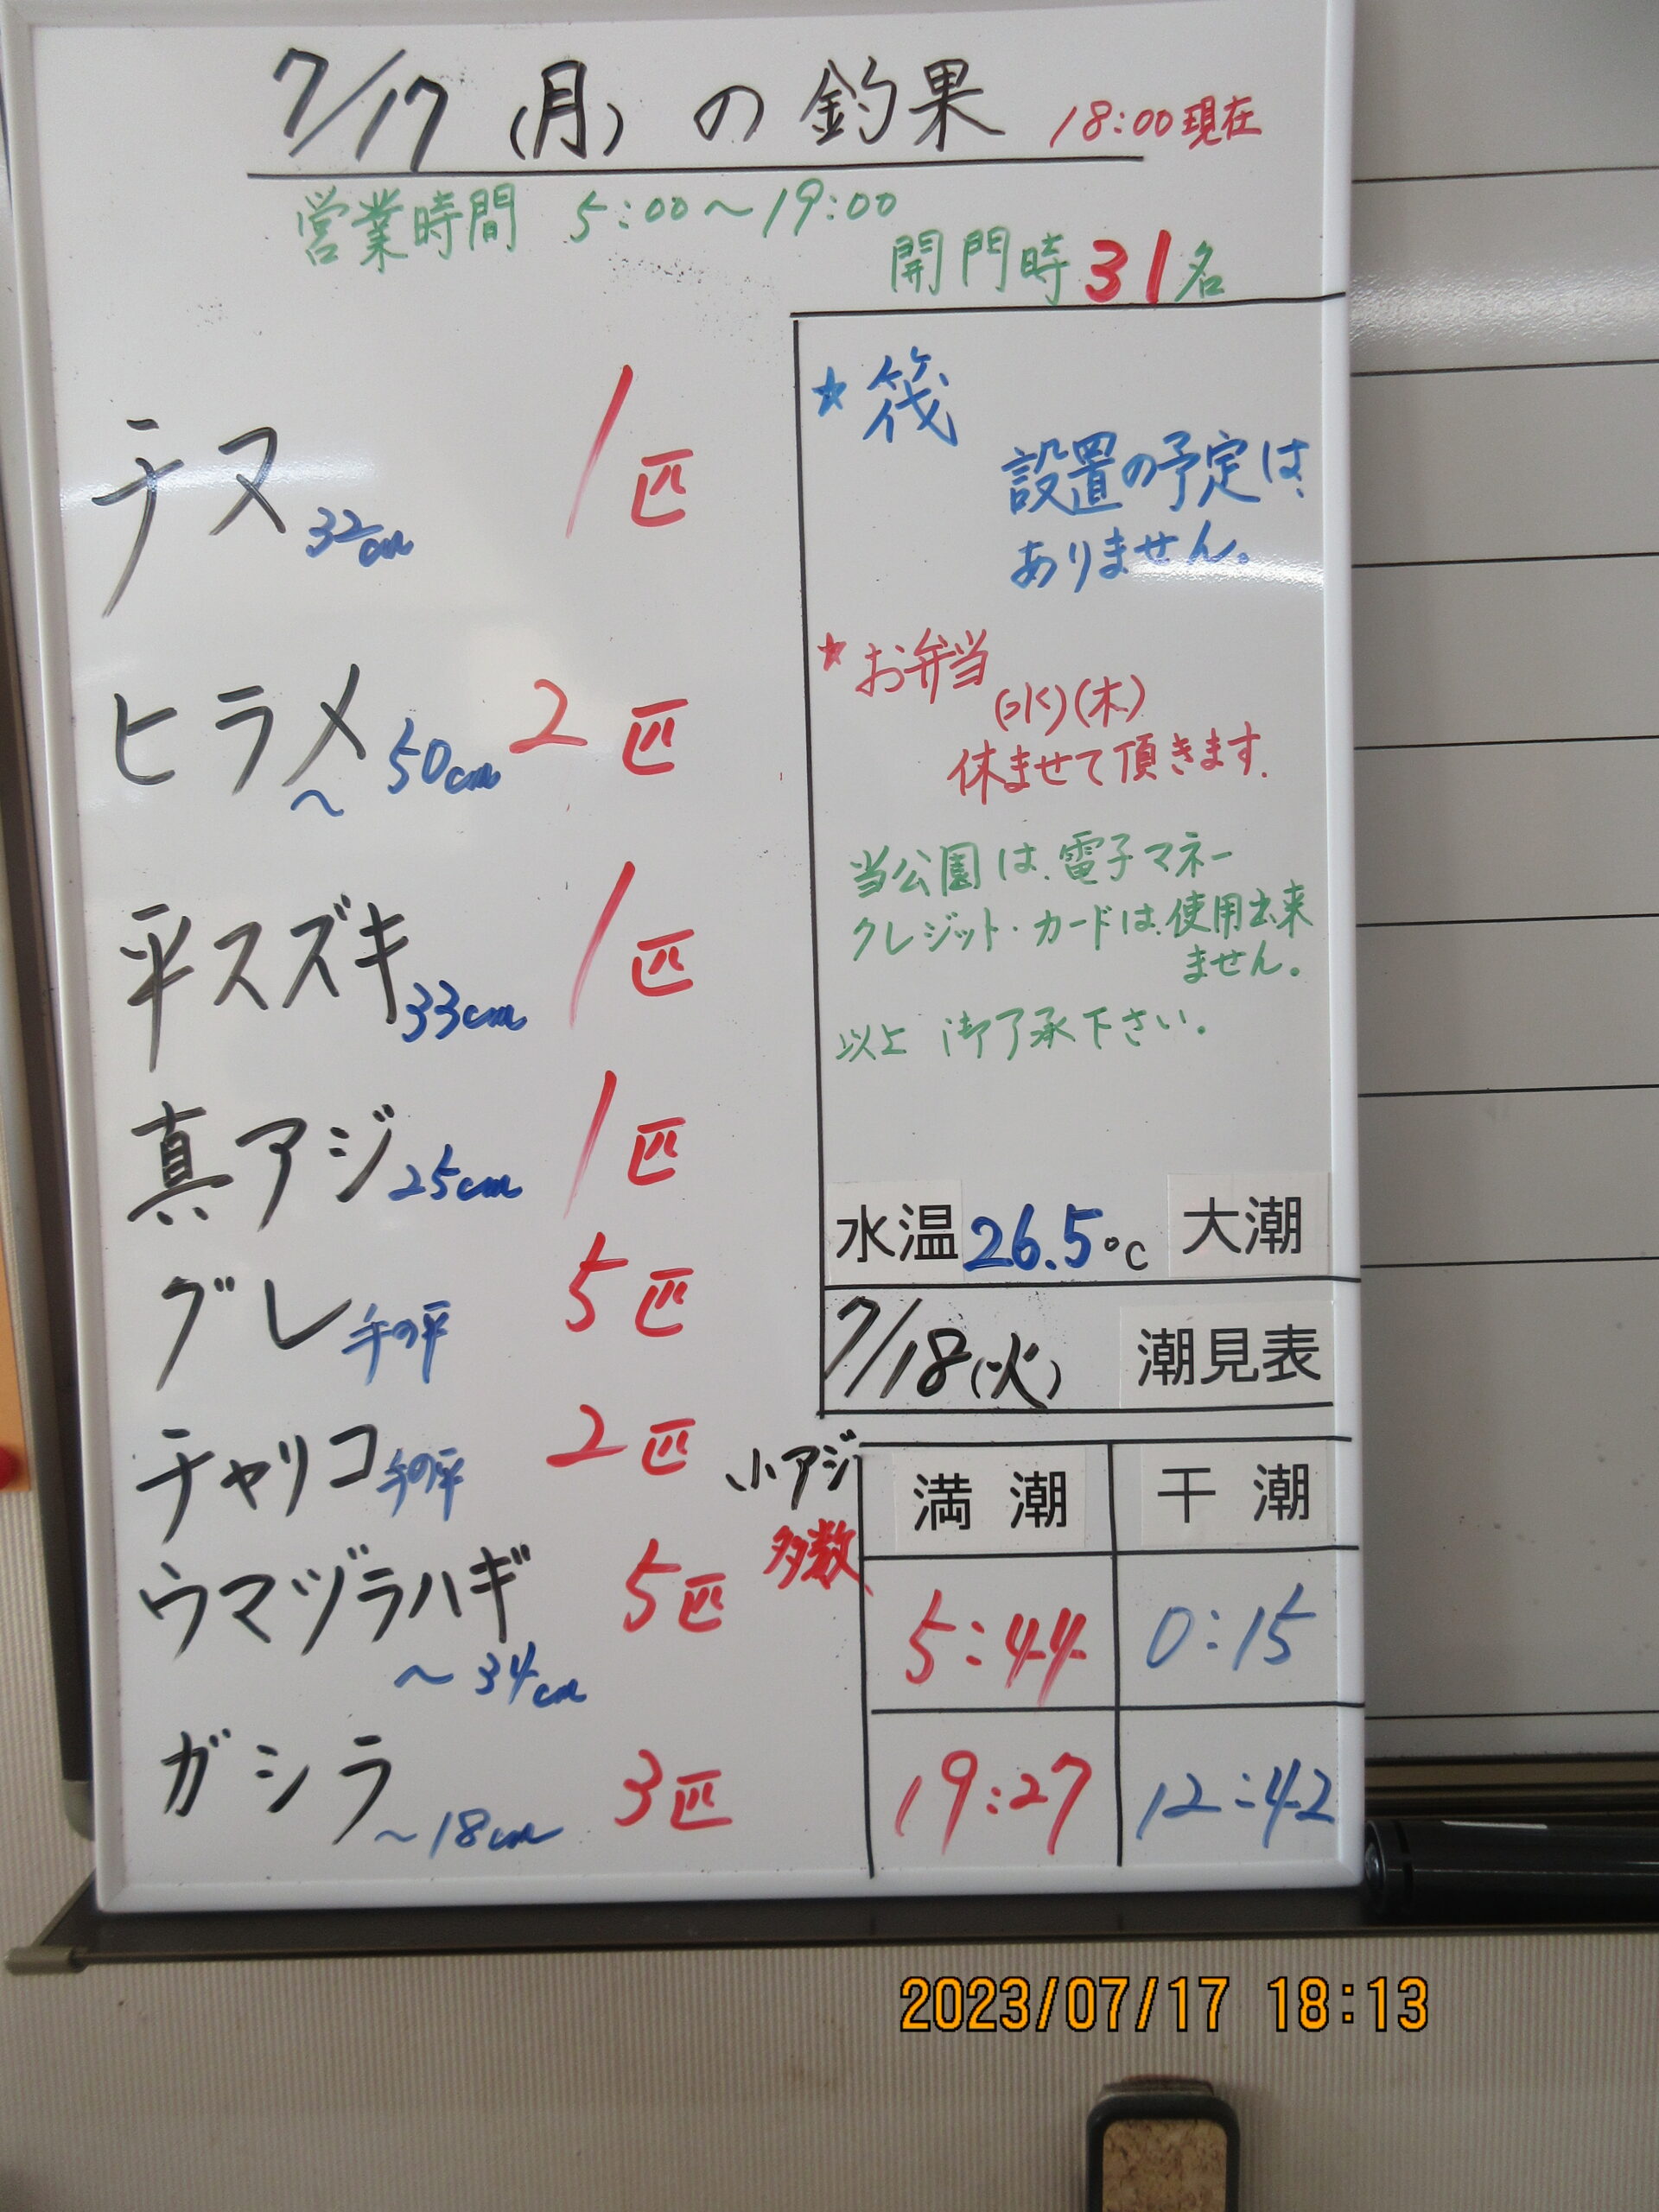 7/17 (月) の釣果 18:00現在
営業時間 5:00〜19:00
開門時31名
チヌ 32cm 1匹
ヒラメ 〜50cm 2匹
平スズキ 33cm 1匹
真アジ 25cm 1匹
グレ 手の平 5匹
チャリコ 手の平 2匹
ウマヅラハギ 〜34cm 5匹
ガシラ 〜18cm 3匹
小アジ
多数
★筏
設置の予定は、
ありません。
★お弁当
(水)(木)
休ませて頂きます.
当公園は、電子マネー
クレジット・カードは、使用出来
ません。
以上 御了承下さい。
水温 26.5℃ 大潮
7/18(火) 潮見表
満潮 干潮
5:44 0:15
19:27 12:42
2023/07/17 18:13